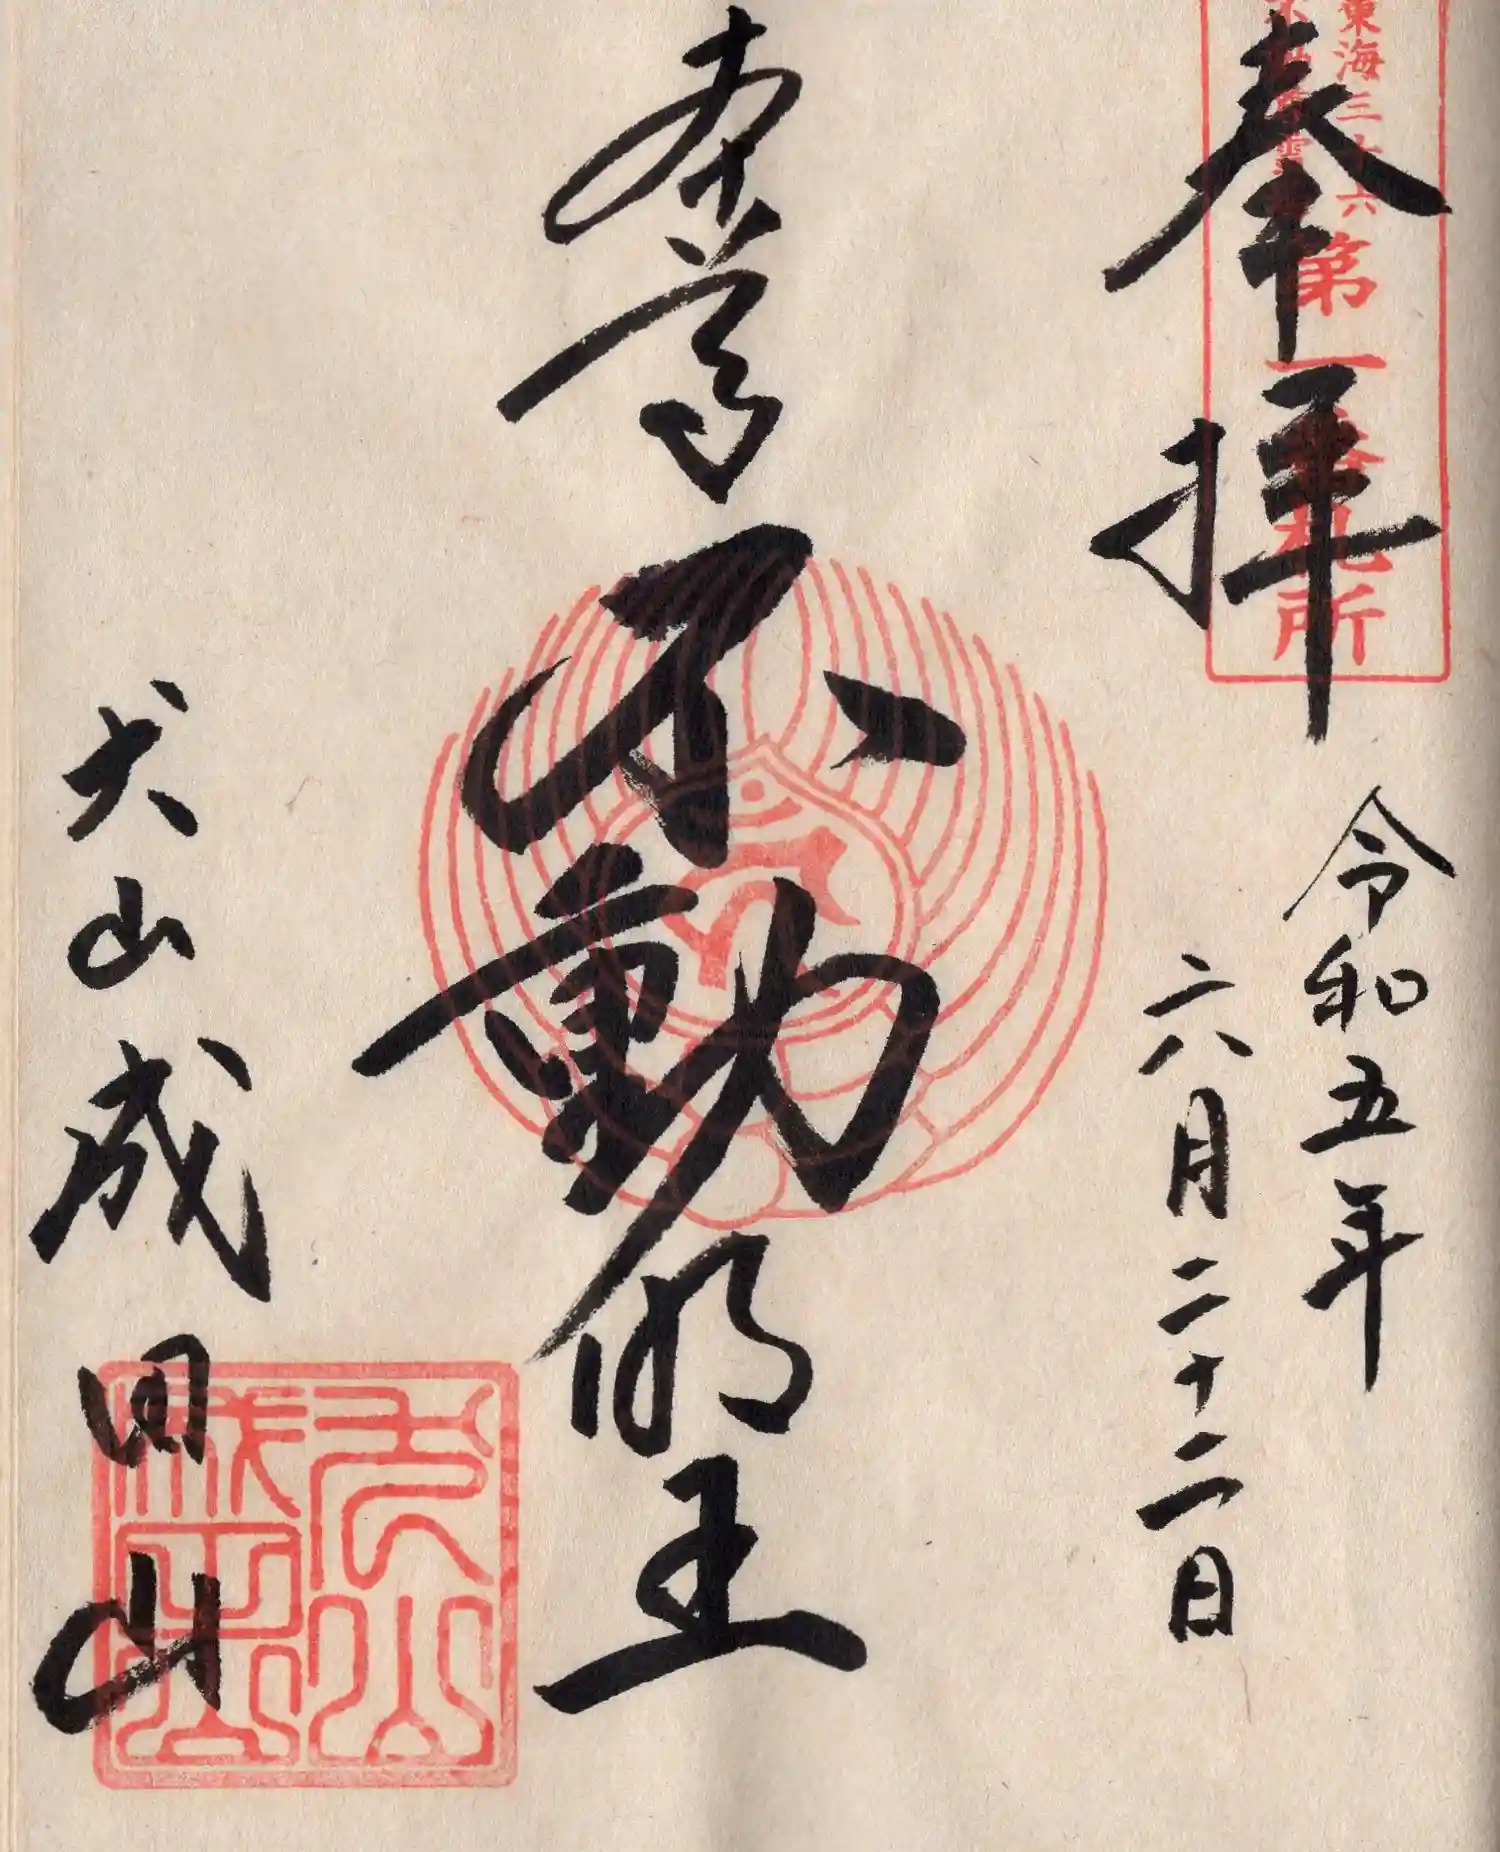 東海三十六
不動尊霊
第一番札所
奉拝
令和五年
六月二十二日
本尊不動明王
犬山成田山